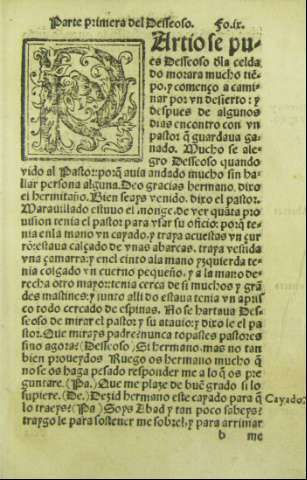 Parte primera del Desseoso. Fo.ix.
PArtiose pu-
es Desseoso dla celda
do morara mucho tiē-
po, y començo a cami
nar por vn desierto: y
despues de algunos
dias encontro con vn
pastor q̃ guardaua ga-
nado. Mucho se ale-
gro Desseoso quando
vido al Pastor: porq̃ auia andado mucho sin ha-
llar persona alguna. Deo gracias hermano, dixo
el hermitaño. Bien seays venido, dixo el pastor.
Marauillado estuuo el monge, de ver quāta pro
uision tenia el pastor para vsar su oficio: porq̃ te-
nia en la mano vn cayado, y traya acuestas vn çur
rō: estaua calçado de vnas abarcas, traya vestida
vna çamarra: y en el cinto a la mano yzquierda te-
nia colgado vn cuerno pequeño, y a la mano de-
recha otro mayor: tenia cerca de si muchos y grā
des mastines: y junto alli do estaua tenia vn apris
co todo cercado de espinas. No se hartaua Des-
seoso de mirar el pastor y su atauio: y dixo le el pa
stor. Que mirays padre: nunca topastes pastores
sino agora? (Desseoso) Si hermano, mas no tan
bien proueydos. Ruego os hermano mucho q̃
no se os haga pesado responder me a lo q̃ os pre
guntare. (Pa.) Que me plaze de buē grado si lo
supiere. (De.) Dezid hermano este cayado para q̃
lo traeys? (Pa) Soys Abad y tan poco sabeys?
traygo le para sostener me sobrel, y para arrimar
Cayado.
b me